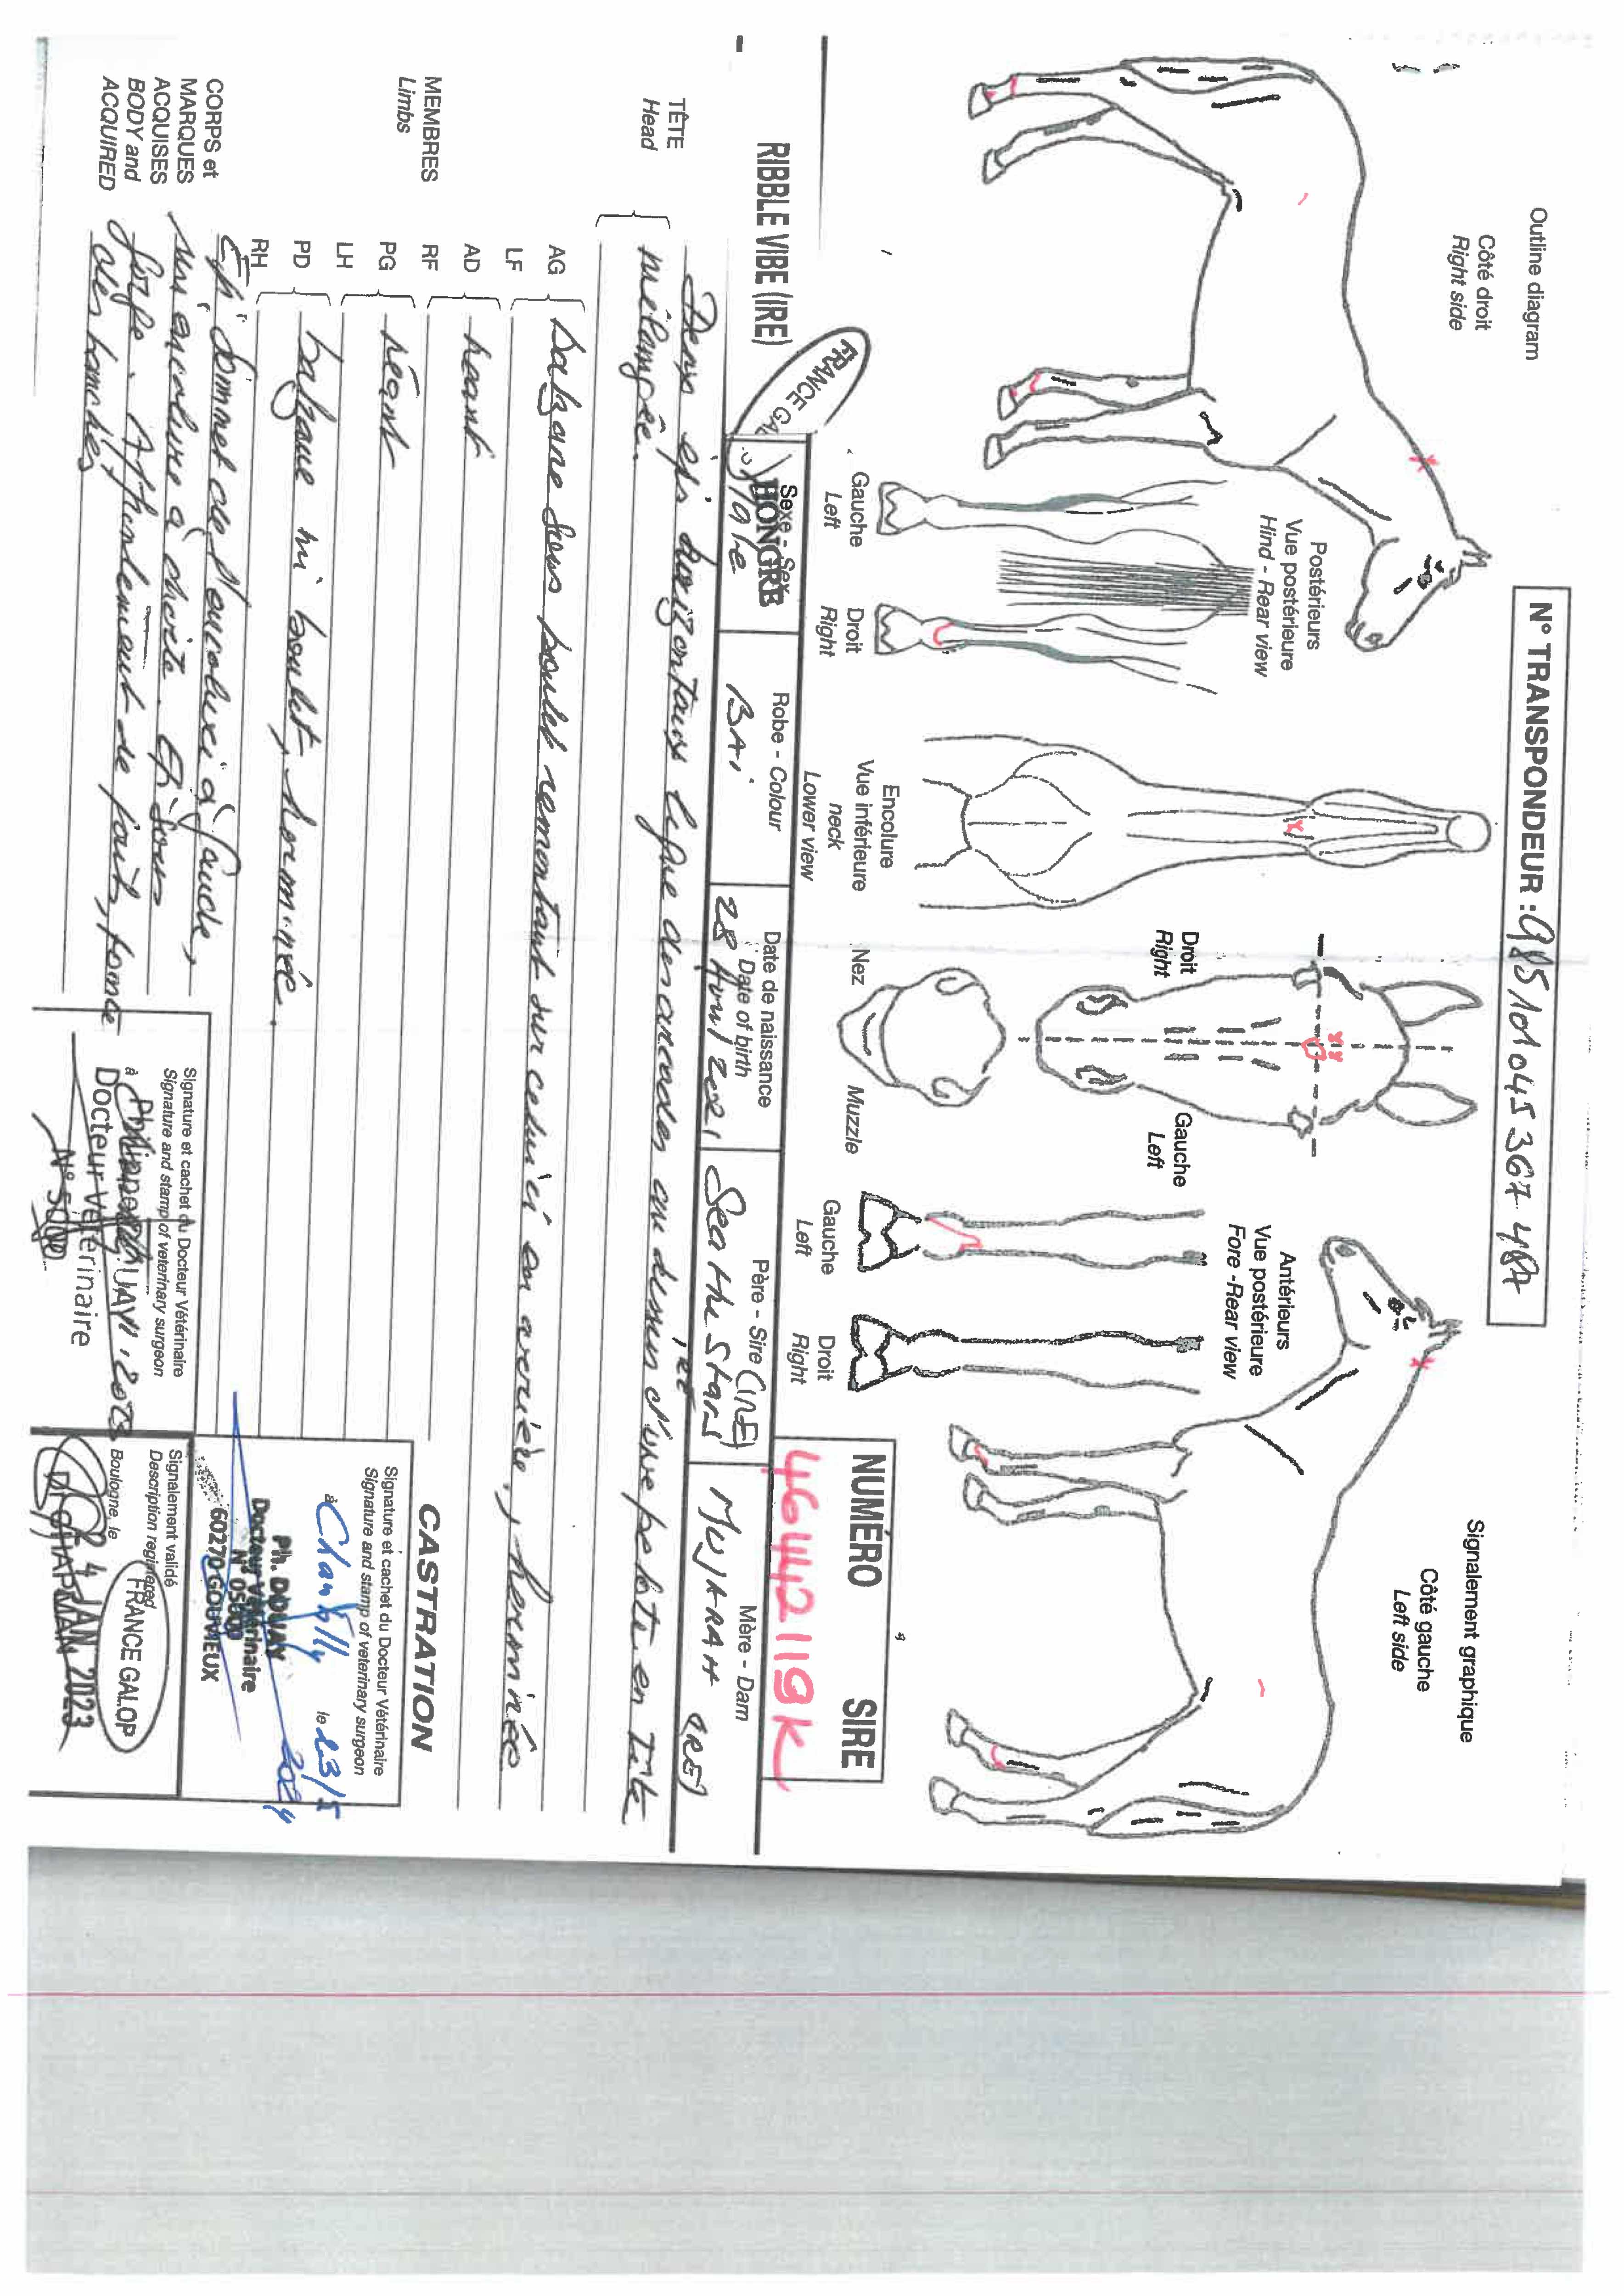 N° TRANSPONDEUR : 985101045367487
Outline diagram
Côté droit
Right side
Signalement graphique
Côté gauche
Left side
Postérieurs
Vue postérieure
Hind - Rear view
Gauche
Left
Droit
Right
Encolure
Vue inférieure
neck
Lower view
Droit
Right
Gauche
Left
Nez
Muzzle
Antérieurs
Vue postérieure
Fore - Rear view
Gauche
Left
Droit
Right
NUMÉRO SIRE
46442119K
RIBBLE VIBE (IRE)
FRANCE GAL
Sexe - Sex
HONGRE
Mâle
Robe - Colour
BAi
Date de naissance
Date of birth
28 Avril 2021
Père - Sire
Sea the Stars (IRE)
Mère - Dam
MUJARAH (IRE)
TÊTE
Head
Deux épis horizontaux ligne des arcades au dessus d'une pelote en Tête
mélangée.
MEMBRES
Limbs
AG
LF
balzane sous boulet remontant sur celui ci en arrière, herminée
AD
RF
néant
PG
LH
néant
PD
RH
balzane mi boulet, herminée.
CORPS et
MARQUES
ACQUISES
BODY and
ACQUIRED
Epi sommet de l'encolure à gauche,
sur encolure à droite. Epi sous
gorge. Affrontement de poils, forme
des hanches
CASTRATION
Signature et cachet du Docteur Vétérinaire
Signature and stamp of veterinary surgeon
à Chantilly le 23/5
2024
Ph. DOUAY
Docteur Vétérinaire
N° 05600
60270 GOUVIEUX
Signature et cachet du Docteur Vétérinaire
Signature and stamp of veterinary surgeon
à
Docteur Vétérinaire
Signalement validé
Description registered
Boulogne, le
24 JAN. 2023
FRANCE GALOP
Dr CHAPMAN